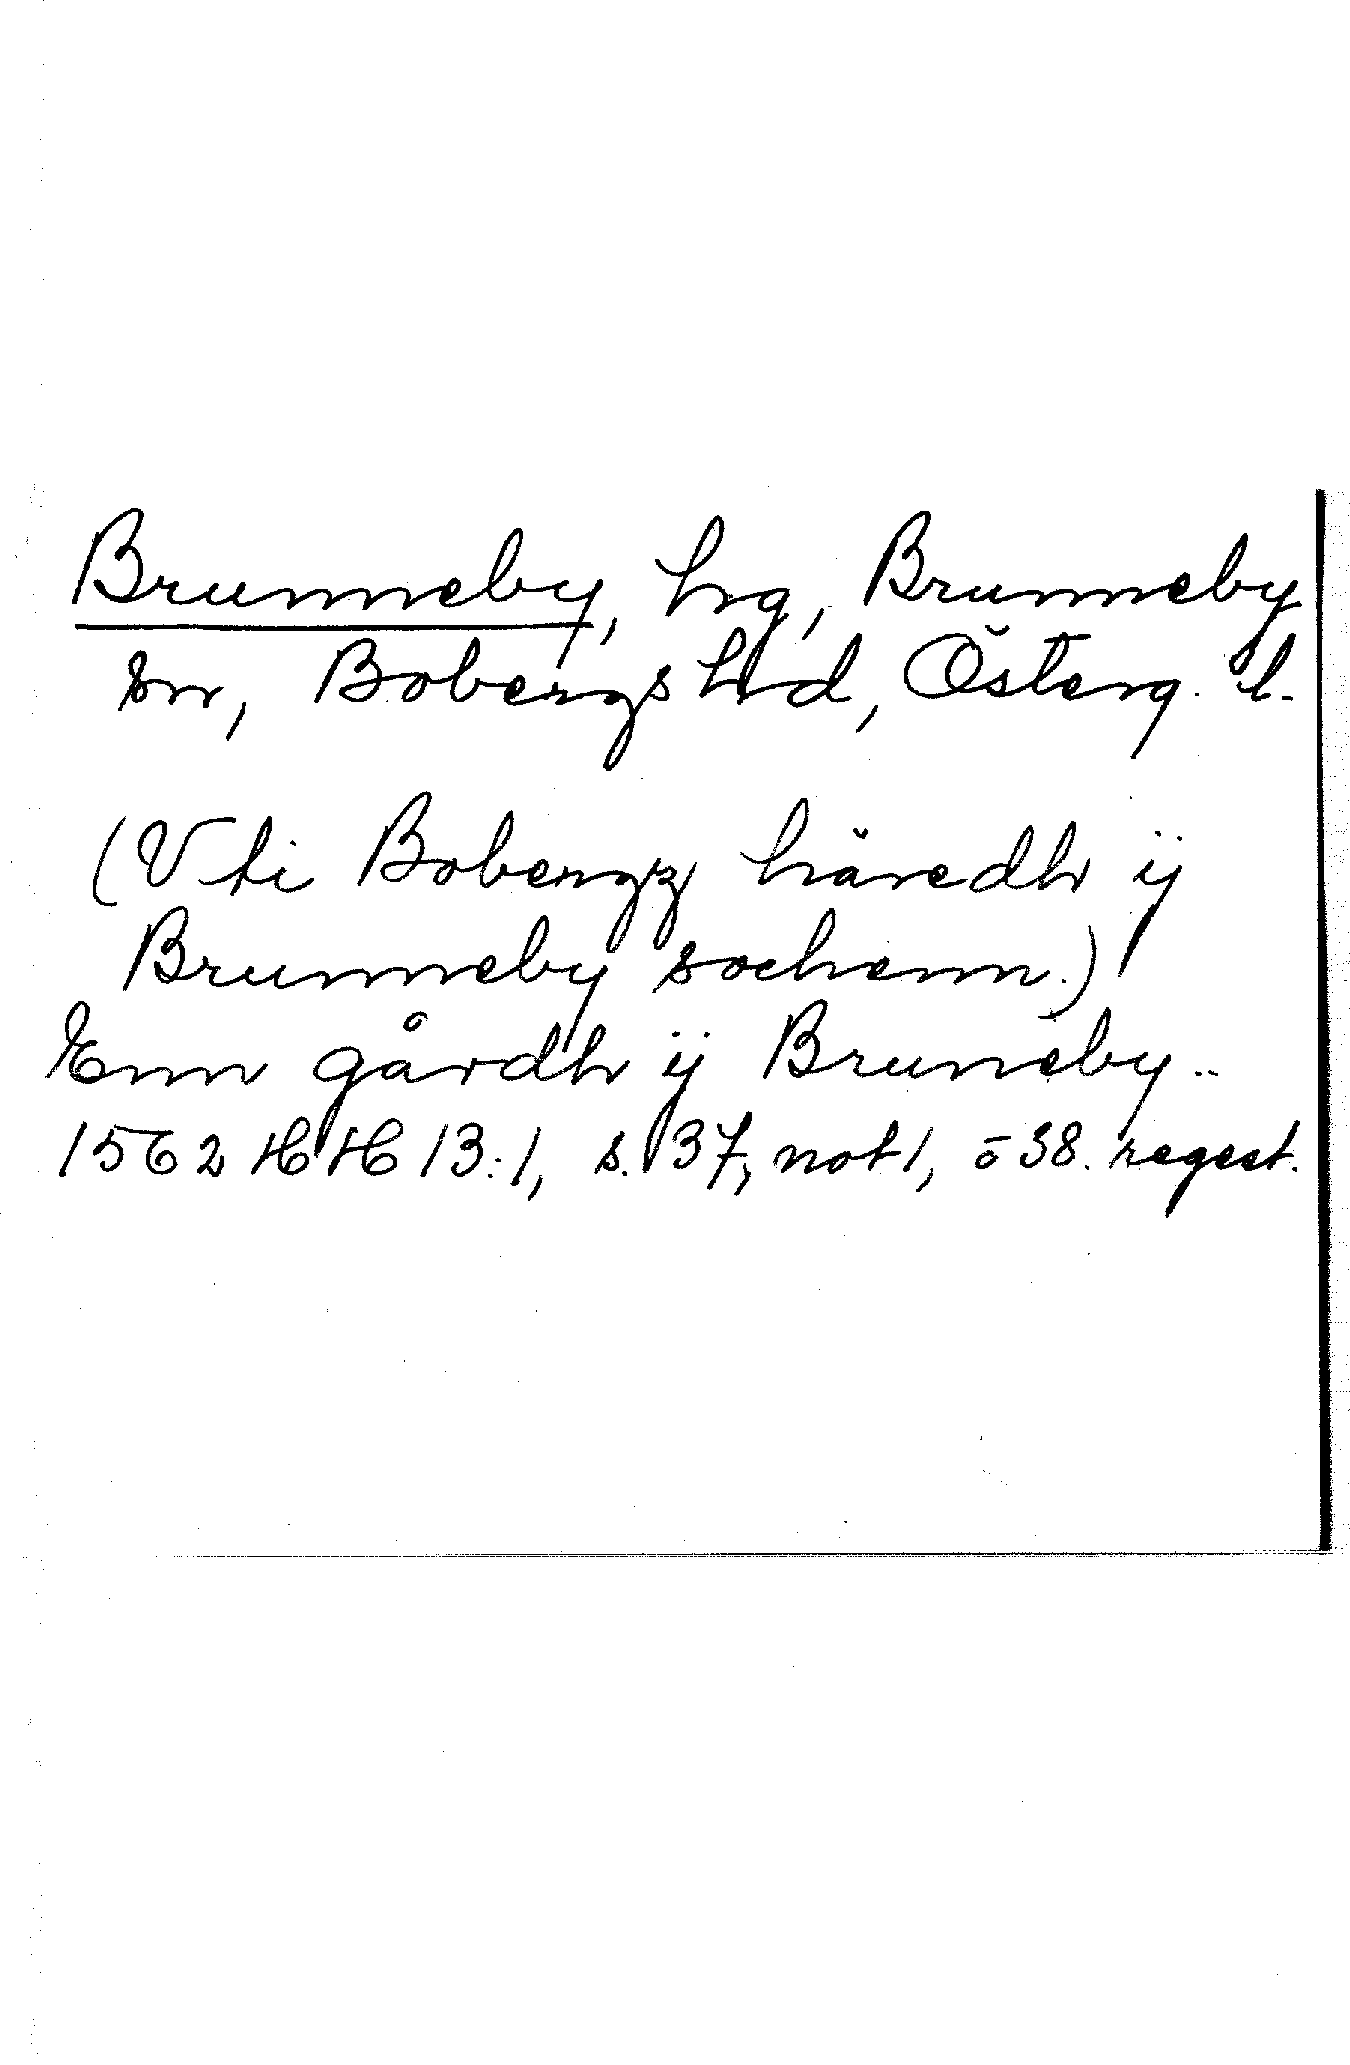 Brunneby, hrg, Brunneby
sn, Bobergs hd, Österg. l.
(Vti Bobergz häredh ij
Brunneby sochenn.)
Enn gårdh ij Bruneby..
1562 HH 13:1, s. 37, not 1, o 38. regest.